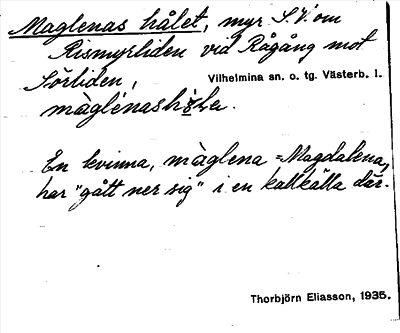 Maglenas hålet, myr S.V. om
Rismyrliden vid Rågång mot
Sörliden, Vilhelmina sn. o. tg. Västerb. l.
En kvinna, màglena = Magdalena,
har "gått ner sig" i en kallkälla där.
Thorbjörn Eliasson, 1935.